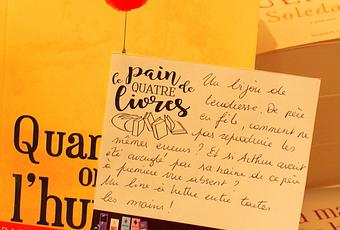 SE
Soleda
le pain de
QUATRE
livres
Un bijou de
tendresse. De père
en fils, comment ne
pas reproduire les
mêmes erreurs ? Et si Arthur avait
été aveuglé par sa haine de ce père
à première vue absent ?
Un livre à mettre entre toutes
les mains !
Quan
on
l'hu
n ma